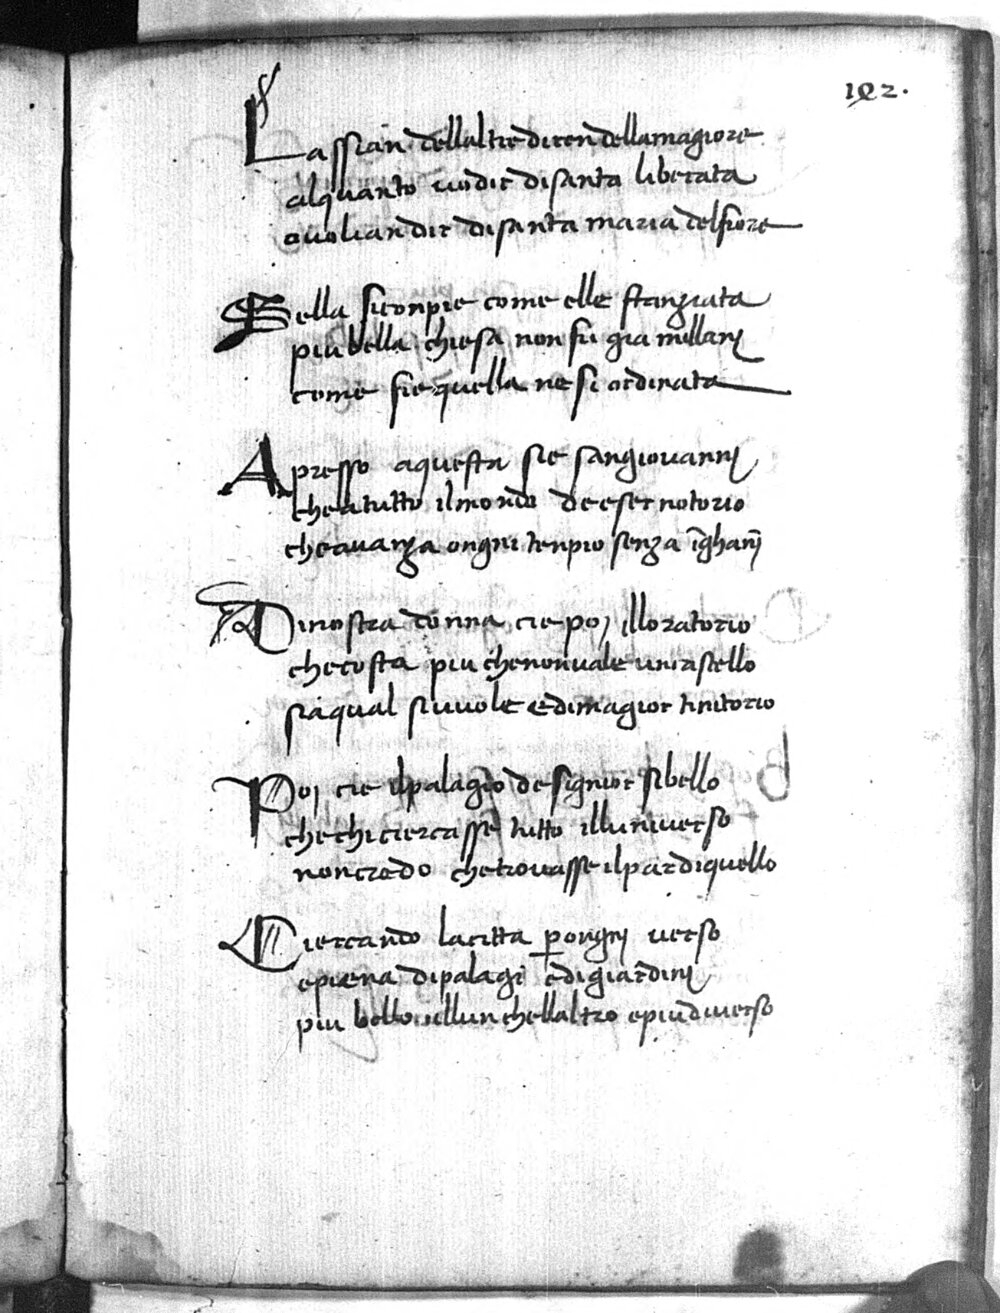 192.
Lassian dellaltre diren dellamagiore
alquanto vodir disanta liberata
ovolian dir disanta maria delfiore
Sella siconpie come elle stanziata
piu bella chiesa non fu gia millanj
come fie quella ne si ordinata
Apresso aquesta sie sangiovannj
cheatutto ilmondo de eser notorio
cheavanza ongni tenpio senza īghanj
Dinostra donna cie poj illoratorio
checosta piu chenonuale uncastello
siaqual siuuole edimagior tinitorio
Poj cie ilpalagio designior sibello
chechiciercasse tutto illuniverso
noncredo chetrouasse ilpardiquello
Ciercando lacitta perongnj verso
epiena dipalagi edigiardinj
piu bello illun chellaltro epiudiverso